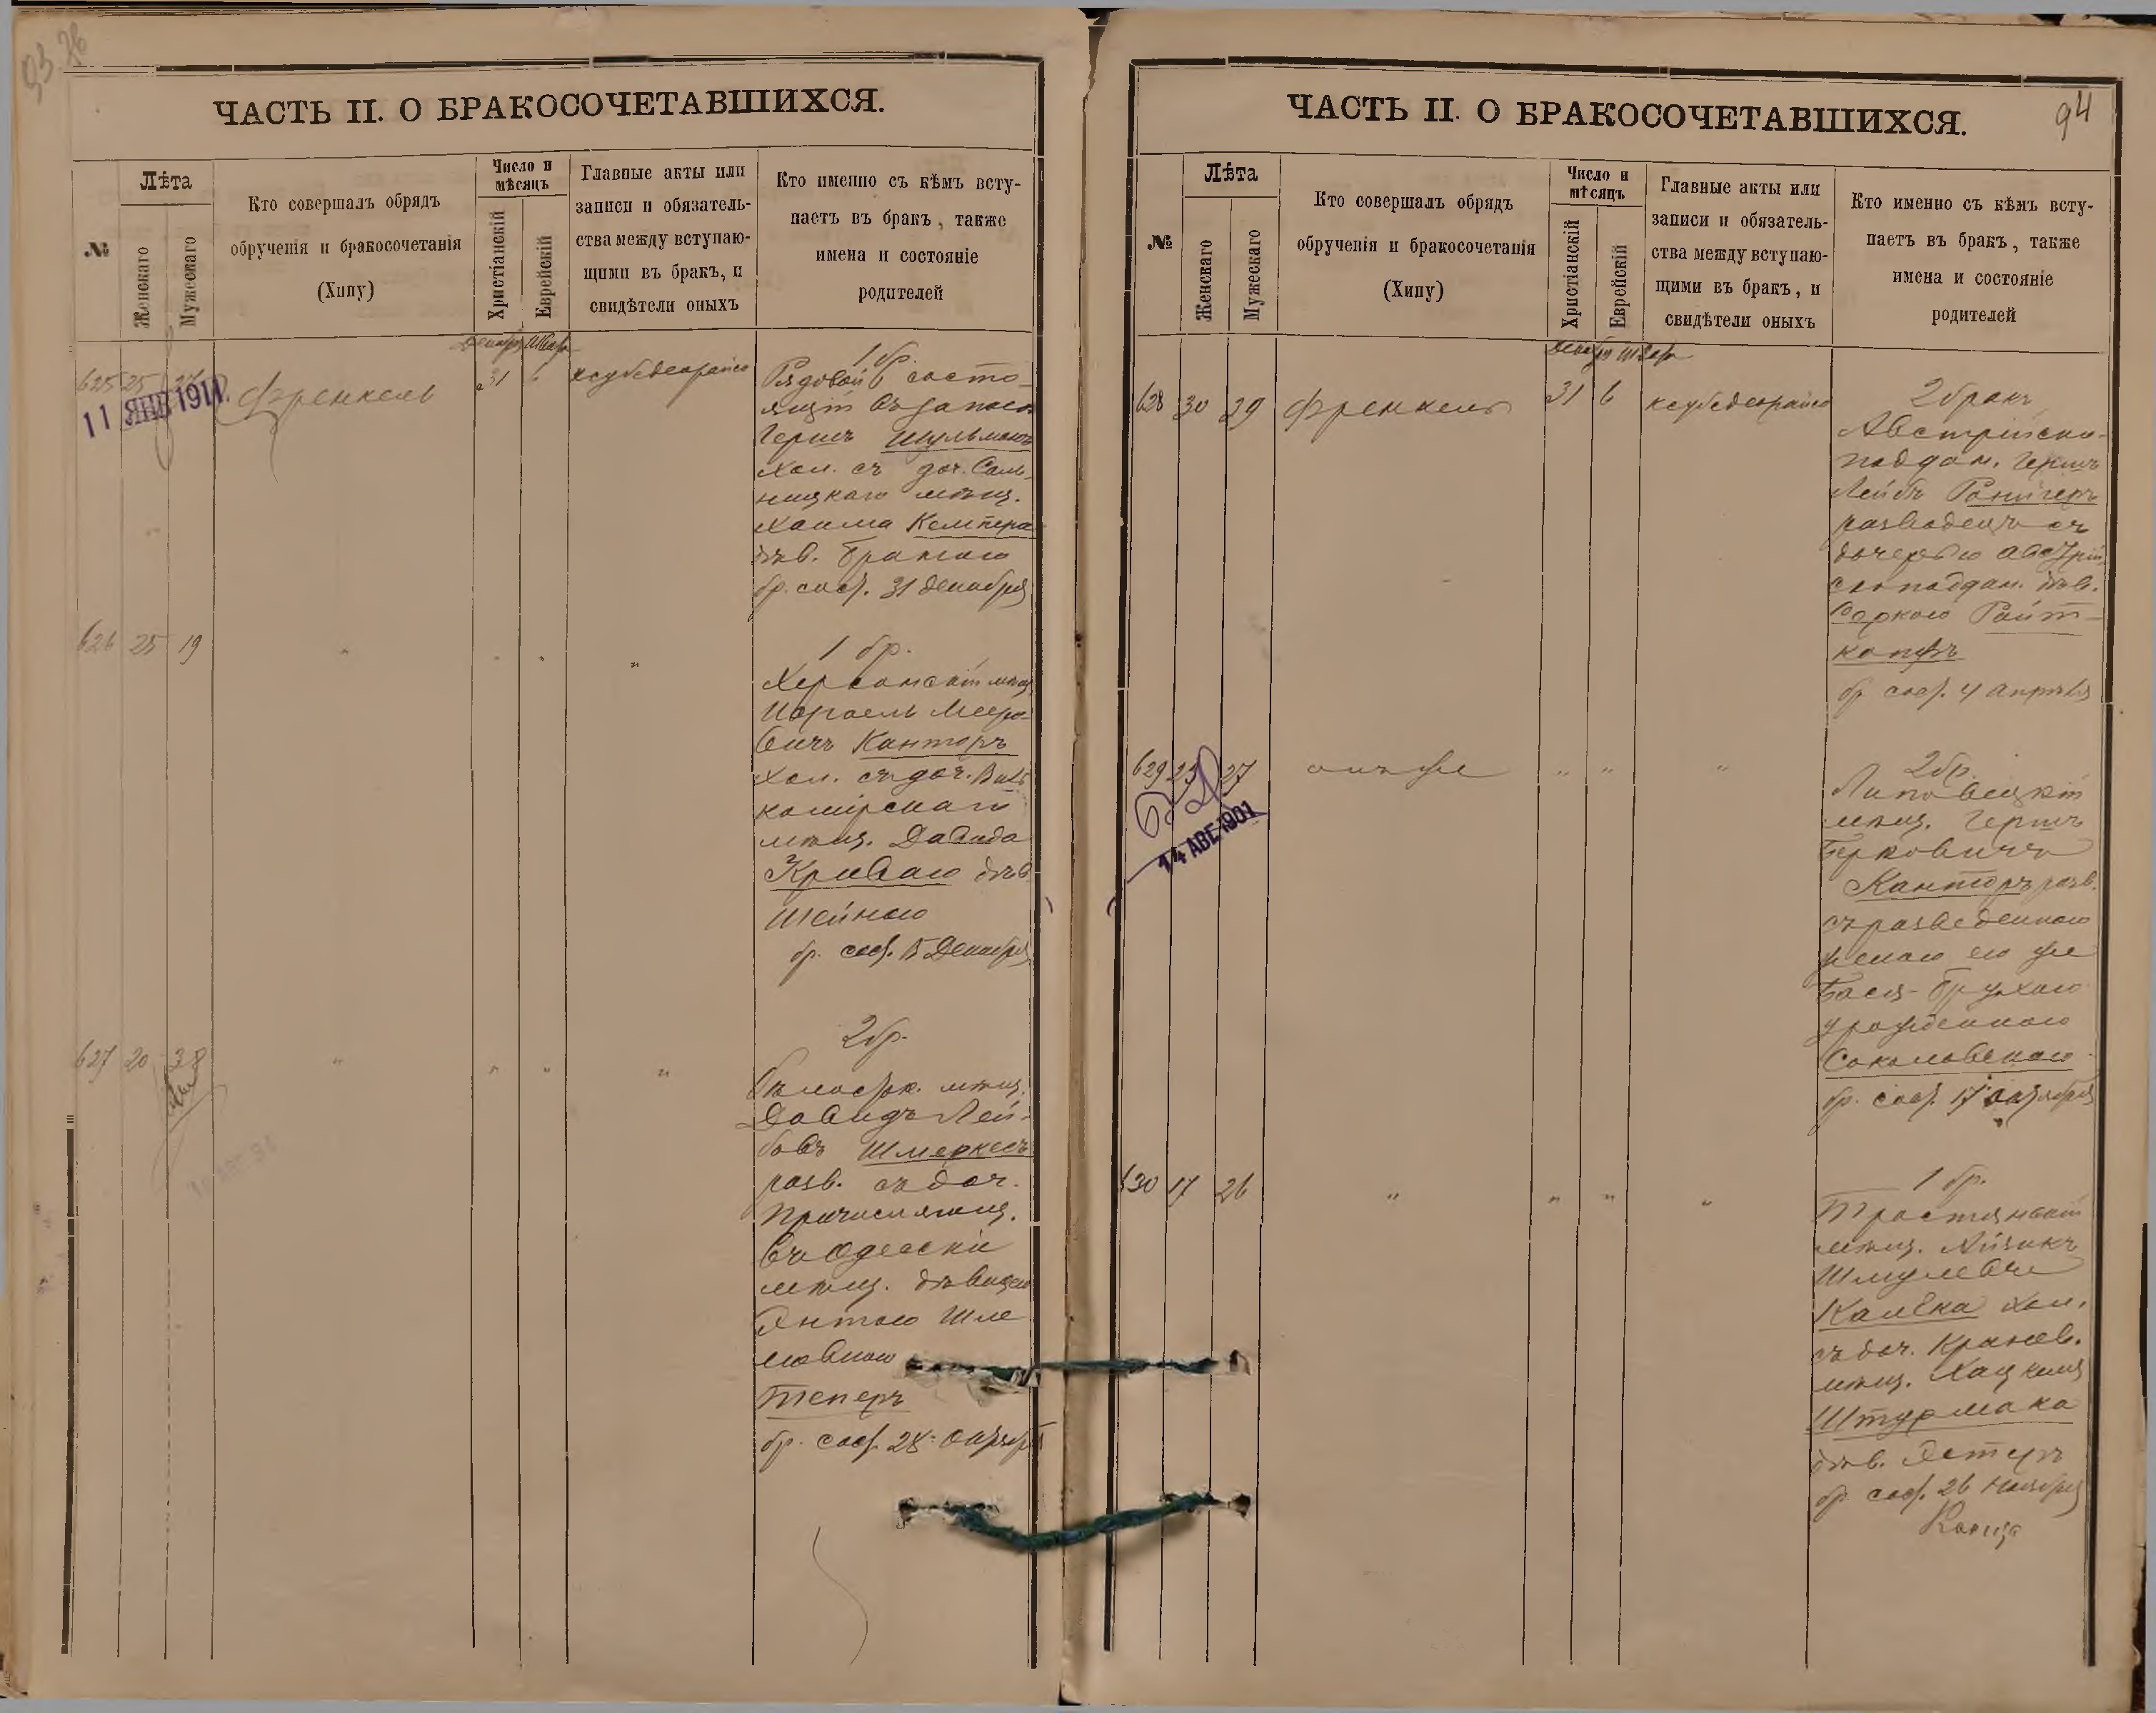 93
ЧАСТЬ II. О БРАКОСОЧЕТАВШИХСЯ.
№
Лѣта
Женскаго
Мужескаго
Кто совершалъ обрядъ
обрученія и бракосочетанія
(Хипу)
Число и
мѣсяцъ
Христіанскій
Еврейскій
Главные акты или
записи и обязатель-
ства между вступаю-
щими въ бракъ, и
свидѣтели оныхъ
Кто именно съ кѣмъ всту-
паетъ въ бракъ, также
имена и состояніе
родителей
625 25 27 Френкель 31 6
11 ЯНВ 1911.
1 бр.
Рядовой состо-
ящій въ запасѣ
Гершъ Шульманъ
хол. съ доч. Саль-
ницкаго мѣщ.
Хаима Кемпера
дѣв. Браною
бр. сост. 31 Декабря
626 25 19 " " " "
1 бр.
Херсонскій мѣщ.
Израель Меро-
вичъ Канторъ
хол. съ доч. Виль-
комірскаго
мѣщ. Давида
Криваго дѣв.
Шейною
бр. сост. 15 Декабря
627 20 38 " " " "
2 бр.
мѣщ.
Давидъ Лей-
бовъ Шмеркесъ
разв. съ доч.
Причисляющ.
въ Одесскіе
мѣщ. дѣвицею
Янтою Шле
мовною
Теперъ
бр. сост. 28 Октября
94
ЧАСТЬ II. О БРАКОСОЧЕТАВШИХСЯ.
№
Лѣта
Женскаго
Мужескаго
Кто совершалъ обрядъ
обрученія и бракосочетанія
(Хипу)
Число и
мѣсяцъ
Христіанскій
Еврейскій
Главные акты или
записи и обязатель-
ства между вступаю-
щими въ бракъ, и
свидѣтели оныхъ
Кто именно съ кѣмъ всту-
паетъ въ бракъ, также
имена и состояніе
родителей
628 30 29 Френкель 31 6
2 бракъ
Австрійско-
поддан. Гершъ
Лейбъ
разведецъ съ
дочерью Австрій
скоподдан. дѣв.
Серкою Райт-
копфъ
бр. сост. 4 Апрѣля
629 25 27 онъ же " " "
14 АВГ 1901
2 бр.
Липовецкій
мѣщ. Гершъ
Берковичъ
Канторъ разв.
съ разведенною
женою его же
Бася-Брухою
урожденною
Соколовскою
бр. сост. 17 Октября
630 17 26 " " " "
1 бр.
Тростянскій
мѣщ. Айзикъ
Шмулевъ
Калѣка хол.
съ доч. Канев.
мѣщ. Хацкеля
Штурмака
дѣв. Эстеръ
бр. сост. 26 Ноября